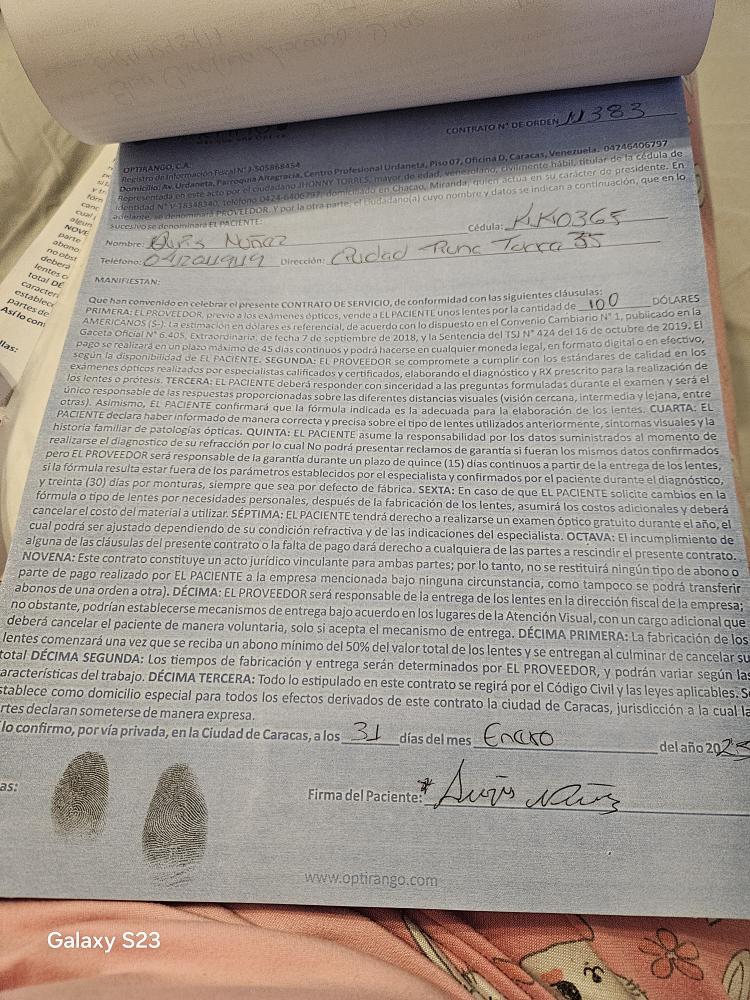 CONTRATO N° DE ORDEN 11383
OPTIRANGO, C.A.
Registro de Información Fiscal N° J-505868454
Domicilio: Av. Urdaneta, Parroquia Altagracia, Centro Profesional Urdaneta, Piso 07, Oficina D, Caracas, Venezuela. 04246406797
Representada en este acto por el ciudadano JHONNY TORRES, mayor de edad, venezolano, civilmente hábil, titular de la cédula de
identidad N° V-18348340, teléfono 0424-6406797, domiciliado en Chacao, Miranda, quien actúa en su carácter de presidente. En
adelante, se denominará PROVEEDOR. Y por la otra parte, el ciudadano(a) cuyo nombre y datos se indican a continuación, que en lo
sucesivo se denominará EL PACIENTE:
Nombre: Nuñez Cédula:
Teléfono: Dirección: Ciudad Tiuna Torre 35
MANIFIESTAN:
Que han convenido en celebrar el presente CONTRATO DE SERVICIO, de conformidad con las siguientes cláusulas:
PRIMERA: EL PROVEEDOR, previo a los exámenes ópticos, vende a EL PACIENTE unos lentes por la cantidad de 100 DÓLARES
AMERICANOS ($-). La estimación en dólares es referencial, de acuerdo con lo dispuesto en el Convenio Cambiario N° 1, publicado en la
Gaceta Oficial N° 6.405, Extraordinaria, de fecha 7 de septiembre de 2018, y la Sentencia del TSJ N° 424 del 16 de octubre de 2019. El
pago se realizará en un plazo máximo de 45 días continuos y podrá hacerse en cualquier moneda legal, en formato digital o en efectivo,
según la disponibilidad de EL PACIENTE. SEGUNDA: EL PROVEEDOR se compromete a cumplir con los estándares de calidad en los
exámenes ópticos realizados por especialistas calificados y certificados, elaborando el diagnóstico y RX prescrito para la realización de
los lentes o prótesis. TERCERA: EL PACIENTE deberá responder con sinceridad a las preguntas formuladas durante el examen y será el
único responsable de las respuestas proporcionadas sobre las diferentes distancias visuales (visión cercana, intermedia y lejana, entre
otras). Asimismo, EL PACIENTE confirmará que la fórmula indicada es la adecuada para la elaboración de los lentes. CUARTA: EL
PACIENTE declara haber informado de manera correcta y precisa sobre el tipo de lentes utilizados anteriormente, síntomas visuales y la
historia familiar de patologías ópticas. QUINTA: EL PACIENTE asume la responsabilidad por los datos suministrados al momento de
realizarse el diagnostico de su refracción por lo cual No podrá presentar reclamos de garantía si fueran los mismos datos confirmados
pero EL PROVEEDOR será responsable de la garantía durante un plazo de quince (15) días continuos a partir de la entrega de los lentes,
si la fórmula resulta estar fuera de los parámetros establecidos por el especialista y confirmados por el paciente durante el diagnóstico,
y treinta (30) días por monturas, siempre que sea por defecto de fábrica. SEXTA: En caso de que EL PACIENTE solicite cambios en la
fórmula o tipo de lentes por necesidades personales, después de la fabricación de los lentes, asumirá los costos adicionales y deberá
cancelar el costo del material a utilizar. SÉPTIMA: EL PACIENTE tendrá derecho a realizarse un examen óptico gratuito durante el año, el
cual podrá ser ajustado dependiendo de su condición refractiva y de las indicaciones del especialista. OCTAVA: El incumplimiento de
alguna de las cláusulas del presente contrato o la falta de pago dará derecho a cualquiera de las partes a rescindir el presente contrato.
NOVENA: Este contrato constituye un acto jurídico vinculante para ambas partes; por lo tanto, no se restituirá ningún tipo de abono o
parte de pago realizado por EL PACIENTE a la empresa mencionada bajo ninguna circunstancia, como tampoco se podrá transferir
abonos de una orden a otra). DÉCIMA: EL PROVEEDOR será responsable de la entrega de los lentes en la dirección fiscal de la empresa;
no obstante, podrían establecerse mecanismos de entrega bajo acuerdo en los lugares de la Atención Visual, con un cargo adicional que
deberá cancelar el paciente de manera voluntaria, solo si acepta el mecanismo de entrega. DÉCIMA PRIMERA: La fabricación de los
lentes comenzará una vez que se reciba un abono mínimo del 50% del valor total de los lentes y se entregan al culminar de cancelar su
total DÉCIMA SEGUNDA: Los tiempos de fabricación y entrega serán determinados por EL PROVEEDOR, y podrán variar según las
características del trabajo. DÉCIMA TERCERA: Todo lo estipulado en este contrato se regirá por el Código Civil y las leyes aplicables. Se
establece como domicilio especial para todos los efectos derivados de este contrato la ciudad de Caracas, jurisdicción a la cual la
rtes declaran someterse de manera expresa.
lo confirmo, por vía privada, en la Ciudad de Caracas, a los 31 días del mes Enero del año 2025
as:
Firma del Paciente:
www.optirango.com
Galaxy S23